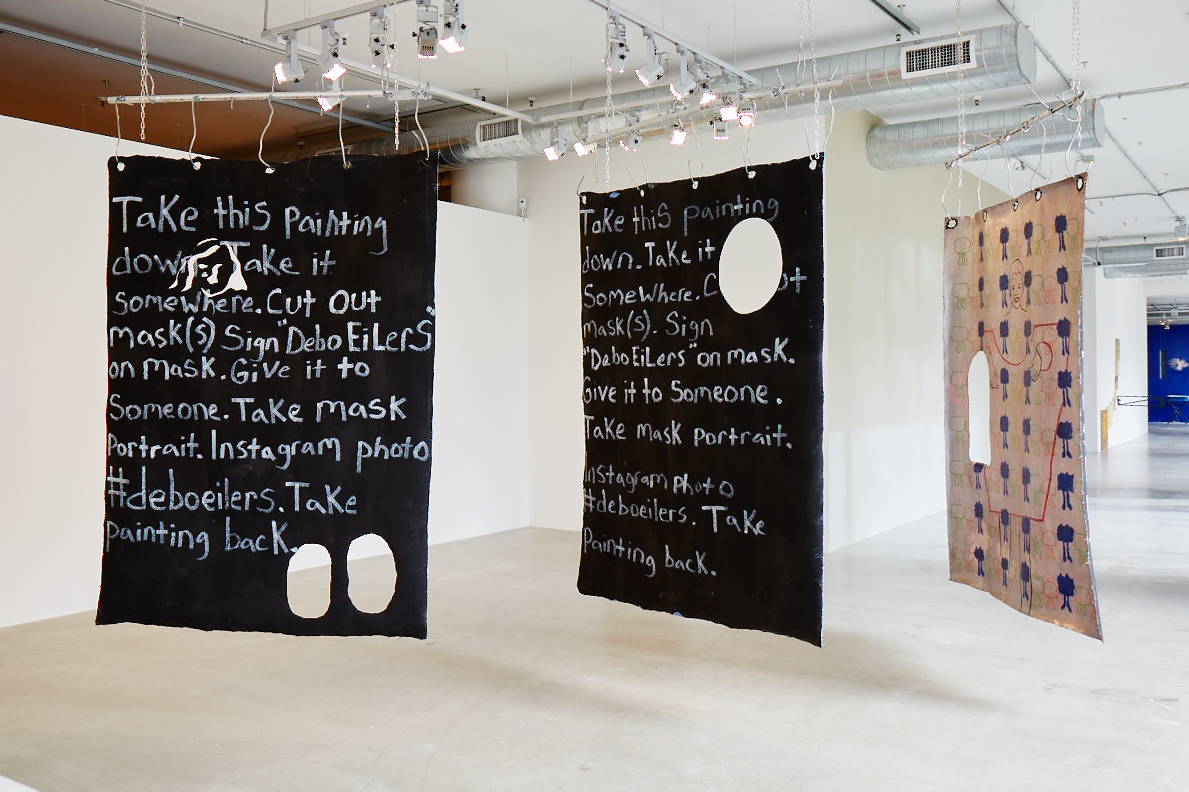 Take this painting
down. Take it
somewhere. Cut out
mask(s) Sign "Debo EiLerS"
on mask. Give it to
Someone. Take mask
Portrait. Instagram photo
#deboeilers. Take
painting back.
Take this painting
down. Take it
Somewhere. C t
mask(s). Sign
"Debo EiLers" on mask.
Give it to Someone.
Take mask portrait.
Instagram photo
#deboeilers. Take
Painting back.